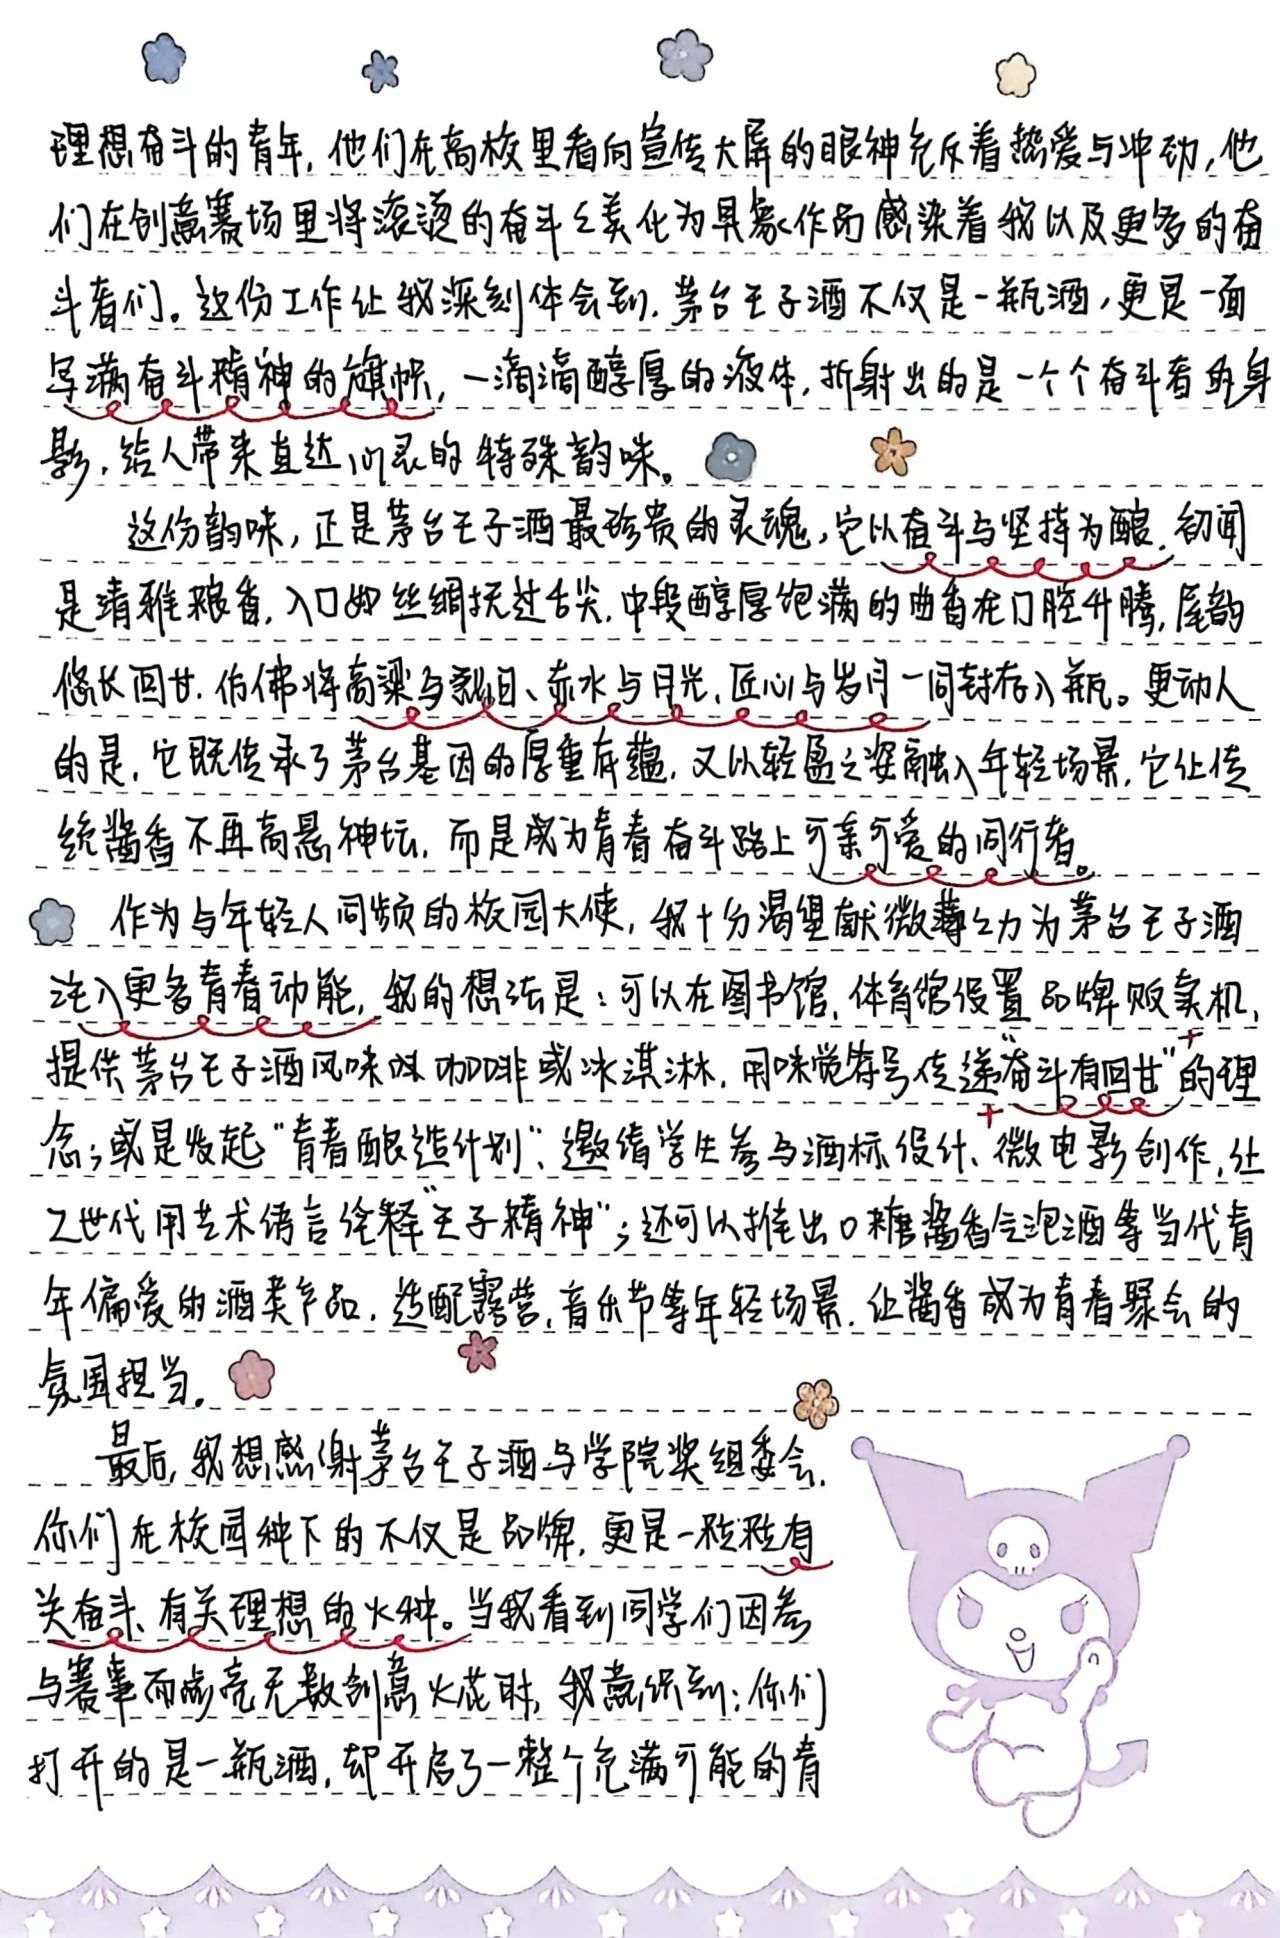 理想奋斗的青年，他们在高校里看向宣传大屏的眼神充斥着热爱与冲动，他
们在创意赛场里将滚烫的奋斗之美化为具象作品感染着我以及更多的奋
斗者们。这份工作让我深刻体会到，茅台王子酒不仅是一瓶酒，更是一面
写满奋斗精神的旗帜，一滴滴醇厚的液体，折射出的是一个个奋斗者的身
影，给人带来直达心灵的特殊韵味。
这份韵味，正是茅台王子酒最珍贵的灵魂，它以奋斗与坚持为酿，初闻
是清雅粮香，入口如丝绸抚过舌尖，中段醇厚饱满的曲香在口腔升腾，尾韵
悠长回甘，仿佛将高粱与烈日、赤水与月光，匠心与岁月一同封存入瓶。更动人
的是，它既传承了茅台基因的厚重底蕴，又以轻盈之姿融入年轻场景，它让传
统酱香不再高悬神坛，而是成为青春奋斗路上可亲可爱的同行者。
作为与年轻人同频的校园大使，我十分渴望献微薄之力为茅台王子酒
注入更多青春动能，我的想法是：可以在图书馆，体育馆设置品牌贩卖机，
提供茅台王子酒风味的咖啡或冰淇淋，用味觉符号传递“奋斗有回甘”的理
念；或是发起“青春酿造计划”，邀请学生参与酒标设计、微电影创作，让
Z世代用艺术语言诠释“王子精神”；还可以推出0糖酱香气泡酒等当代青
年偏爱的酒类产品，适配露营，音乐节等年轻场景，让酱香成为青春聚会的
氛围担当。
最后，我想感谢茅台王子酒与学院奖组委会，
你们在校园种下的不仅是品牌，更是一粒粒有
关奋斗、有关理想的火种。当我看到同学们因参
与赛事而点亮无数创意火花时，我意识到：你们
打开的是一瓶酒，却开启了一整个充满可能的青